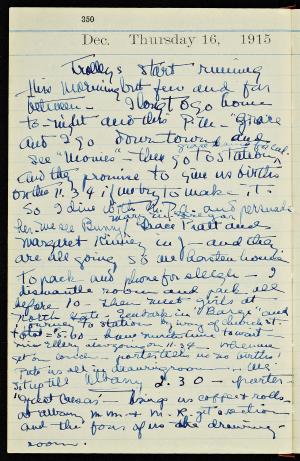 350
Dec. Thursday 16, 1915
Trolleys start running
this morning but few and far
between - I long to go home
to-night and this P.M. Grace
and I go down town and
see "Movies" - then go to station
and they promise to give us births
on the 11.34 if we try to make it.
So I dine with and persuade
her - we see Bunny, Grace Pratt and
Margaret Kinney in J - and they
are all going so we hasten home
to pack and phone for sleigh - I
dismantle room and pack all
before 10 - then meet girls at
North Gate - Embark in "Barge" and
journey to station by way of
- have and wait -
11.34 - When we
get on porter tells us no births!
Puts us all in drawing room - We
sit up till Albany 2.30 - porter -
"Great Caesar" - brings us coffee & rolls
at Albany M.M. & M.K. get section
and the four of us the drawing-
room.